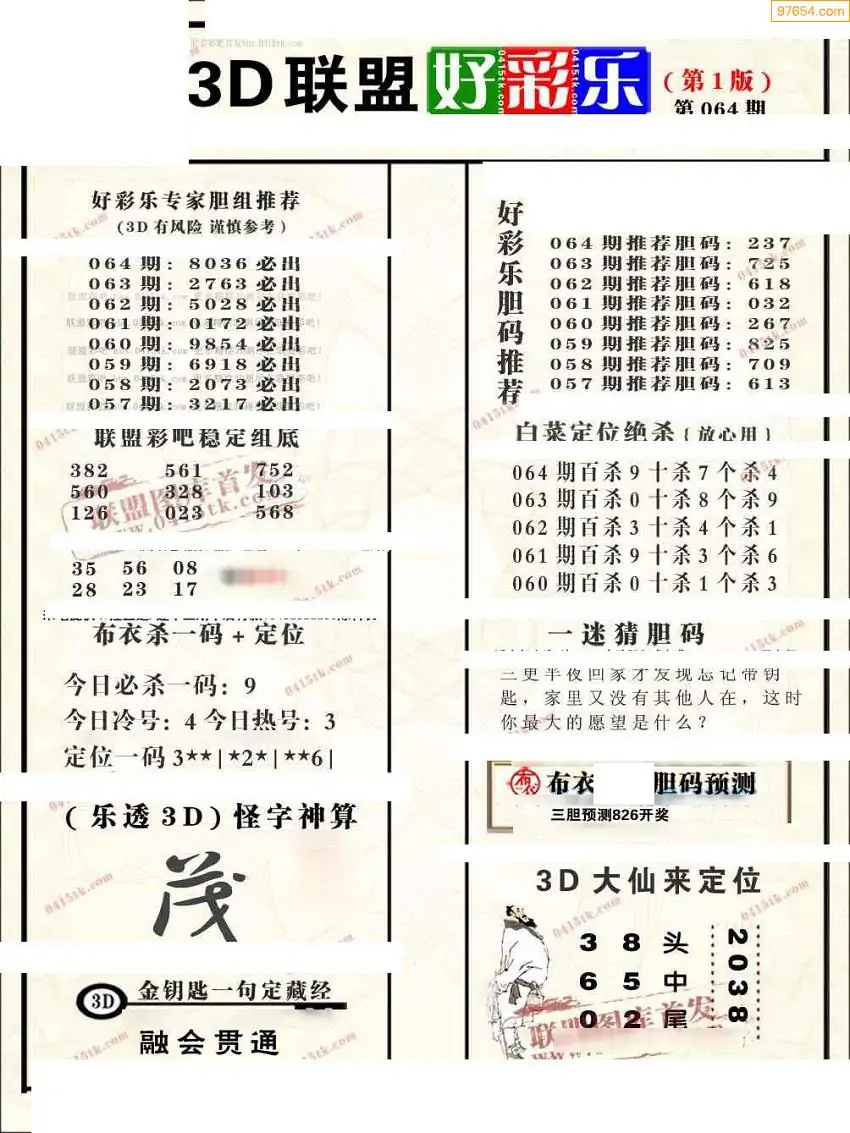 97654.com
3D联盟好彩乐
(第1版)
第064期
好彩乐专家胆组推荐
(3D有风险 谨慎参考)
064期: 8036必出
063期: 2763必出
062期: 5028必出
061期: 0172必出
060期: 9854必出
059期: 6918必出
058期: 2073必出
057期: 3217必出
联盟彩吧稳定组底
382 561 752
560 328 103
126 023 568
35 56 08
28 23 17
布衣杀一码+定位
今日必杀一码: 9
今日冷号: 4 今日热号: 3
定位一码 3★★|★2★|★★6|
(乐透3D)怪字神算
茂
3D 金钥匙一句定藏经
融会贯通
好彩乐胆码推荐
064期推荐胆码: 237
063期推荐胆码: 725
062期推荐胆码: 618
061期推荐胆码: 032
060期推荐胆码: 267
059期推荐胆码: 825
058期推荐胆码: 709
057期推荐胆码: 613
白菜定位绝杀{放心用}
064期百杀9十杀7个杀4
063期百杀0十杀8个杀9
062期百杀3十杀4个杀1
061期百杀9十杀3个杀6
060期百杀0十杀1个杀3
一迷猜胆码
三更半夜回家才发现忘记带钥
匙，家里又没有其他人在，这时
你最大的愿望是什么？
布衣 胆码预测
三胆预测826开奖
3D大仙来定位
3 8 头
6 5 中
0 2 尾
2038
联盟图库首发
www.0415tk.com
0415tk.com